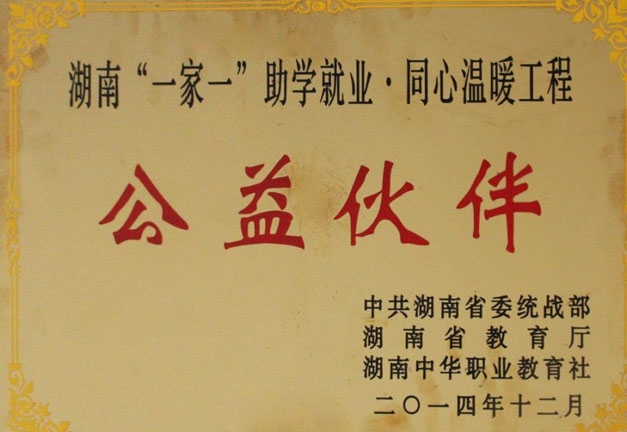 湖南“一家一”助学就业·同心温暖工程
公益伙伴
中共湖南省委统战部
湖南省教育厅
湖南中华职业教育社
二〇一四年十二月